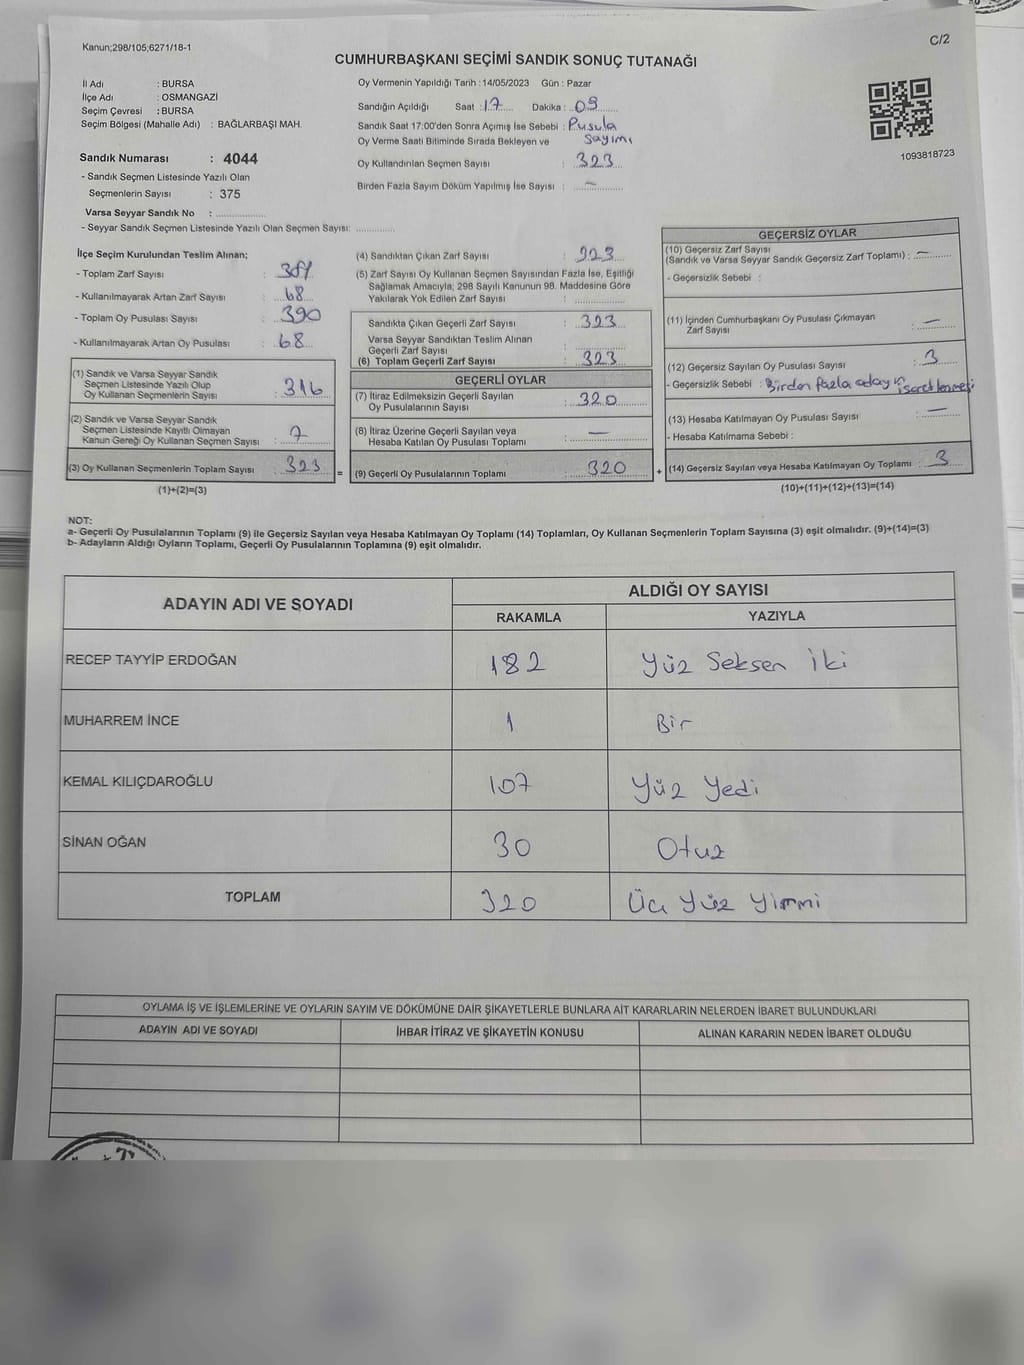 Kanun;298/105;6271/18-1
C/2
CUMHURBAŞKANI SEÇİMİ SANDIK SONUÇ TUTANAĞI
İl Adı : BURSA
İlçe Adı : OSMANGAZİ
Seçim Çevresi : BURSA
Seçim Bölgesi (Mahalle Adı) : BAĞLARBAŞI MAH.
Sandık Numarası : 4044
- Sandık Seçmen Listesinde Yazılı Olan
Seçmenlerin Sayısı : 375
Varsa Seyyar Sandık No : ..................
- Seyyar Sandık Seçmen Listesinde Yazılı Olan Seçmen Sayısı: .............
Oy Vermenin Yapıldığı Tarih : 14/05/2023 Gün : Pazar
Sandığın Açıldığı Saat : 17 Dakika : 09
Sandık Saat 17:00'den Sonra Açımış İse Sebebi : Pusula
Sayımı
Oy Verme Saati Bitiminde Sırada Bekleyen ve
Oy Kullandırılan Seçmen Sayısı : 323
Birden Fazla Sayım Döküm Yapılmış İse Sayısı : -
1093818723
İlçe Seçim Kurulundan Teslim Alınan;
- Toplam Zarf Sayısı :
- Kullanılmayarak Artan Zarf Sayısı : 68
- Toplam Oy Pusulası Sayısı : 390
- Kullanılmayarak Artan Oy Pusulası : 68
(1) Sandık ve Varsa Seyyar Sandık
Seçmen Listesinde Yazılı Olup
Oy Kullanan Seçmenlerin Sayısı : 316
(2) Sandık ve Varsa Seyyar Sandık
Seçmen Listesinde Kayıtlı Olmayan
Kanun Gereği Oy Kullanan Seçmen Sayısı : 7
(3) Oy Kullanan Seçmenlerin Toplam Sayısı : 323
(1)+(2)=(3)
(4) Sandıktan Çıkan Zarf Sayısı : 323
(5) Zarf Sayısı Oy Kullanan Seçmen Sayısından Fazla İse, Eşitliği
Sağlamak Amacıyla; 298 Sayılı Kanunun 98. Maddesine Göre
Yakılarak Yok Edilen Zarf Sayısı : .............
Sandıkta Çıkan Geçerli Zarf Sayısı : 323
Varsa Seyyar Sandıktan Teslim Alınan
Geçerli Zarf Sayısı : .............
(6) Toplam Geçerli Zarf Sayısı : 323
GEÇERLİ OYLAR
(7) İtiraz Edilmeksizin Geçerli Sayılan
Oy Pusulalarının Sayısı : 320
(8) İtiraz Üzerine Geçerli Sayılan veya
Hesaba Katılan Oy Pusulası Toplamı : -
= (9) Geçerli Oy Pusulalarının Toplamı : 320 +
GEÇERSİZ OYLAR
(10) Geçersiz Zarf Sayısı
(Sandık ve Varsa Seyyar Sandık Geçersiz Zarf Toplamı) : -
- Geçersizlik Sebebi :
(11) İçinden Cumhurbaşkanı Oy Pusulası Çıkmayan
Zarf Sayısı : -
(12) Geçersiz Sayılan Oy Pusulası Sayısı : 3
- Geçersizlik Sebebi : Birden fazla adayın
işaretlenmesi
(13) Hesaba Katılmayan Oy Pusulası Sayısı : -
- Hesaba Katılmama Sebebi :
(14) Geçersiz Sayılan veya Hesaba Katılmayan Oy Toplamı : 3
(10)+(11)+(12)+(13)=(14)
NOT:
a- Geçerli Oy Pusulalarının Toplamı (9) ile Geçersiz Sayılan veya Hesaba Katılmayan Oy Toplamı (14) Toplamları, Oy Kullanan Seçmenlerin Toplam Sayısına (3) eşit olmalıdır. (9)+(14)=(3)
b- Adayların Aldığı Oyların Toplamı, Geçerli Oy Pusulalarının Toplamına (9) eşit olmalıdır.
ADAYIN ADI VE SOYADI ALDIĞI OY SAYISI
RAKAMLA YAZIYLA
RECEP TAYYİP ERDOĞAN 182 Yüz Seksen İki
MUHARREM İNCE 1 Bir
KEMAL KILIÇDAROĞLU 107 Yüz Yedi
SİNAN OĞAN 30 Otuz
TOPLAM 320 Üç Yüz Yirmi
OYLAMA İŞ VE İŞLEMLERİNE VE OYLARIN SAYIM VE DÖKÜMÜNE DAİR ŞİKAYETLERLE BUNLARA AİT KARARLARIN NELERDEN İBARET BULUNDUKLARI
ADAYIN ADI VE SOYADI İHBAR İTİRAZ VE ŞİKAYETİN KONUSU ALINAN KARARIN NEDEN İBARET OLDUĞU